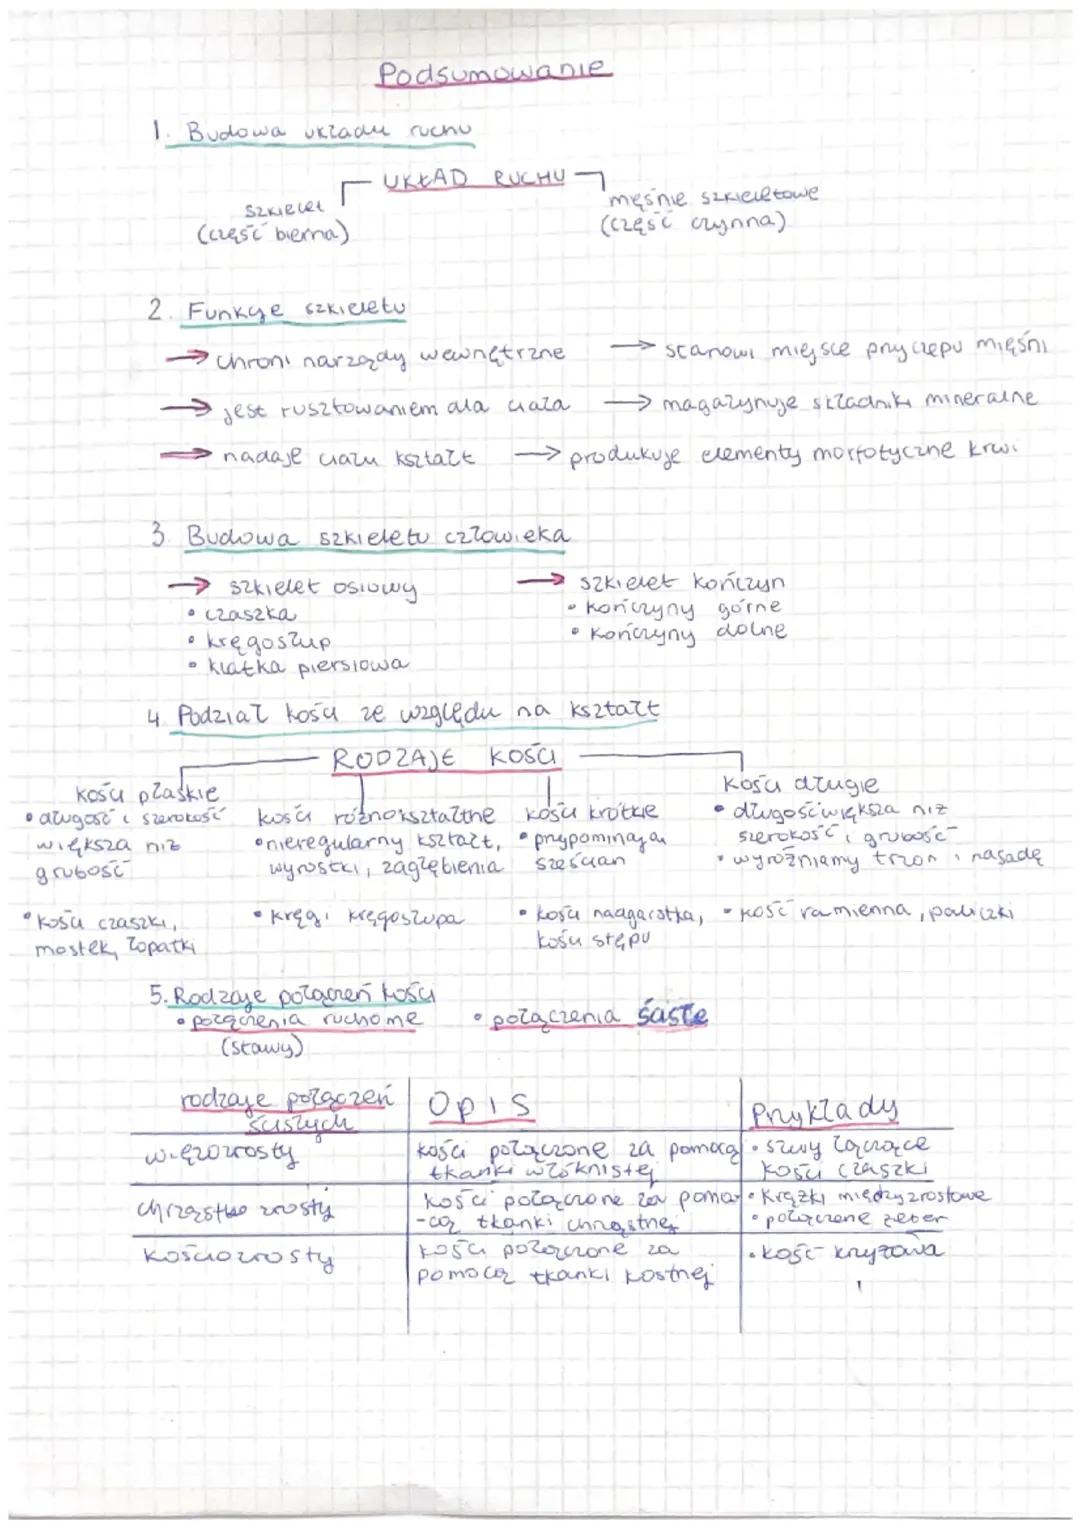 Podsumowanie
1. Budowa układu ruchu
UKŁAD RUCHU
szkielet
(część bierna)
męśnie szkieletowe
(część czynna)
2. Funkcje szkieletu
→ chroni narządy wewnętrzne
→ stanowi miejsce przyczepu mięśni
→ jest rusztowaniem dla ciała
→ magazynuje składniki mineralne
→ nadaje ciału kształt
→ produkuje elementy morfotyczne krwi
3. Budowa szkieletu człowieka
→ szkielet osiowy
• czaszka
• kręgosłup
• klatka piersiowa
→ szkielet kończyn
• kończyny górne
• kończyny dolne
4. Podział kości ze względu na kształt
RODZAJE KOŚCI
kości płaskie
• długość i szerokość
większa niż
grubość
• kości czaszki,
mostek, łopatki
kości różnokształtne
• nieregularny kształt,
wyrostki, zagłębienia
• kręgi kręgosłupa
kości krótkie
• przypominają
sześcian
• kości nadgarstka,
kości stępu
Kości długie
• długość większa niż
szerokość i grubość
• wyróżniamy trzon i nasadę
• kość ramienna, paliczki
5. Rodzaje połączeń kości
• połączenia ruchome
(stawy)
• połączenia ścisłe
rodzaje połączeń
ścisłych
Opis
Przykłady
więzozrosty
kości połączone za pomocą
tkanki włóknistej
• szwy łączące
kości czaszki
chrząstkozrosty
kości połączone za pomo-
-cą tkanki chrząstnej
• krążki międzyzrostowe
• połączenie żeber
kościozrosty
kości połączone za
pomocą tkanki kostnej
• kość krzyżowa